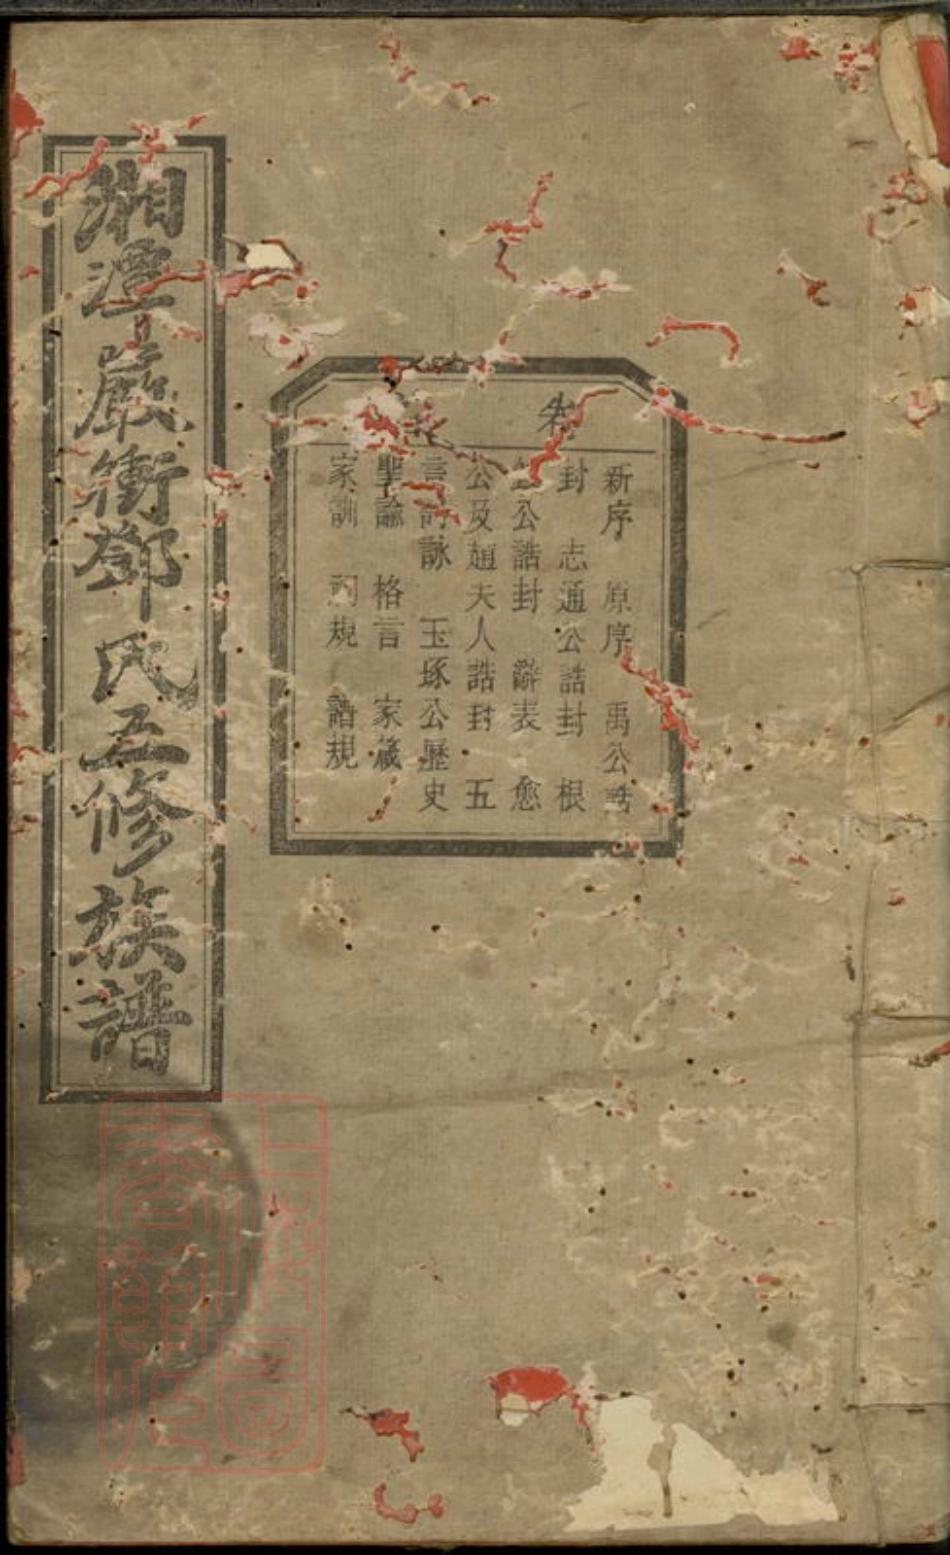 湘潭嚴衝鄧氏五修族譜
卷
新序 原序 禹公誥
封 志通公誥封 根
公誥封 辭表 愈
公及趙夫人誥封 五
言詩詠 玉琢公歷史
聖諭 格言 家箴
家訓 祠規 譜規
上海圖書館藏